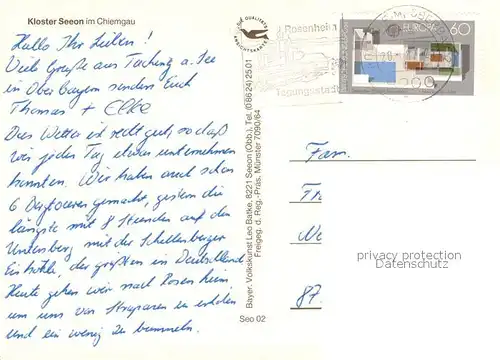 Kloster Seeon im Chiemgau
Hallo Ihr Lieben!
Viele Grüße aus Taching a. See
in Oberbayern senden Euch
Thomas + Elke
Das Wetter ist recht gut, so daß
wir jeden Tag etwas unternehmen
konnten. Wir haben auch schon
6 Bergtouren gemacht, gestern die
längste mit 8 Stunden auf den
Untersberg mit der Schellenberger
Eishöhle, der größten in Deutschland
Heute gehen wir nach Rosenheim
um uns von Strapazen zu erholen
und ein wenig zu bummeln.
Seo 02
Bayer. Volkskunst Leo Batke, 8221 Seeon (Obb.), Tel. (0 86 24) 25 01
Freigeg. d. Reg.-Präs. Münster 7090/64
QUALITÄTS
ANSICHTSKARTE
Rosenheim
Tagungsstadt
EUROPA
60
Fam.
87.
privacy protection
Datenschutz